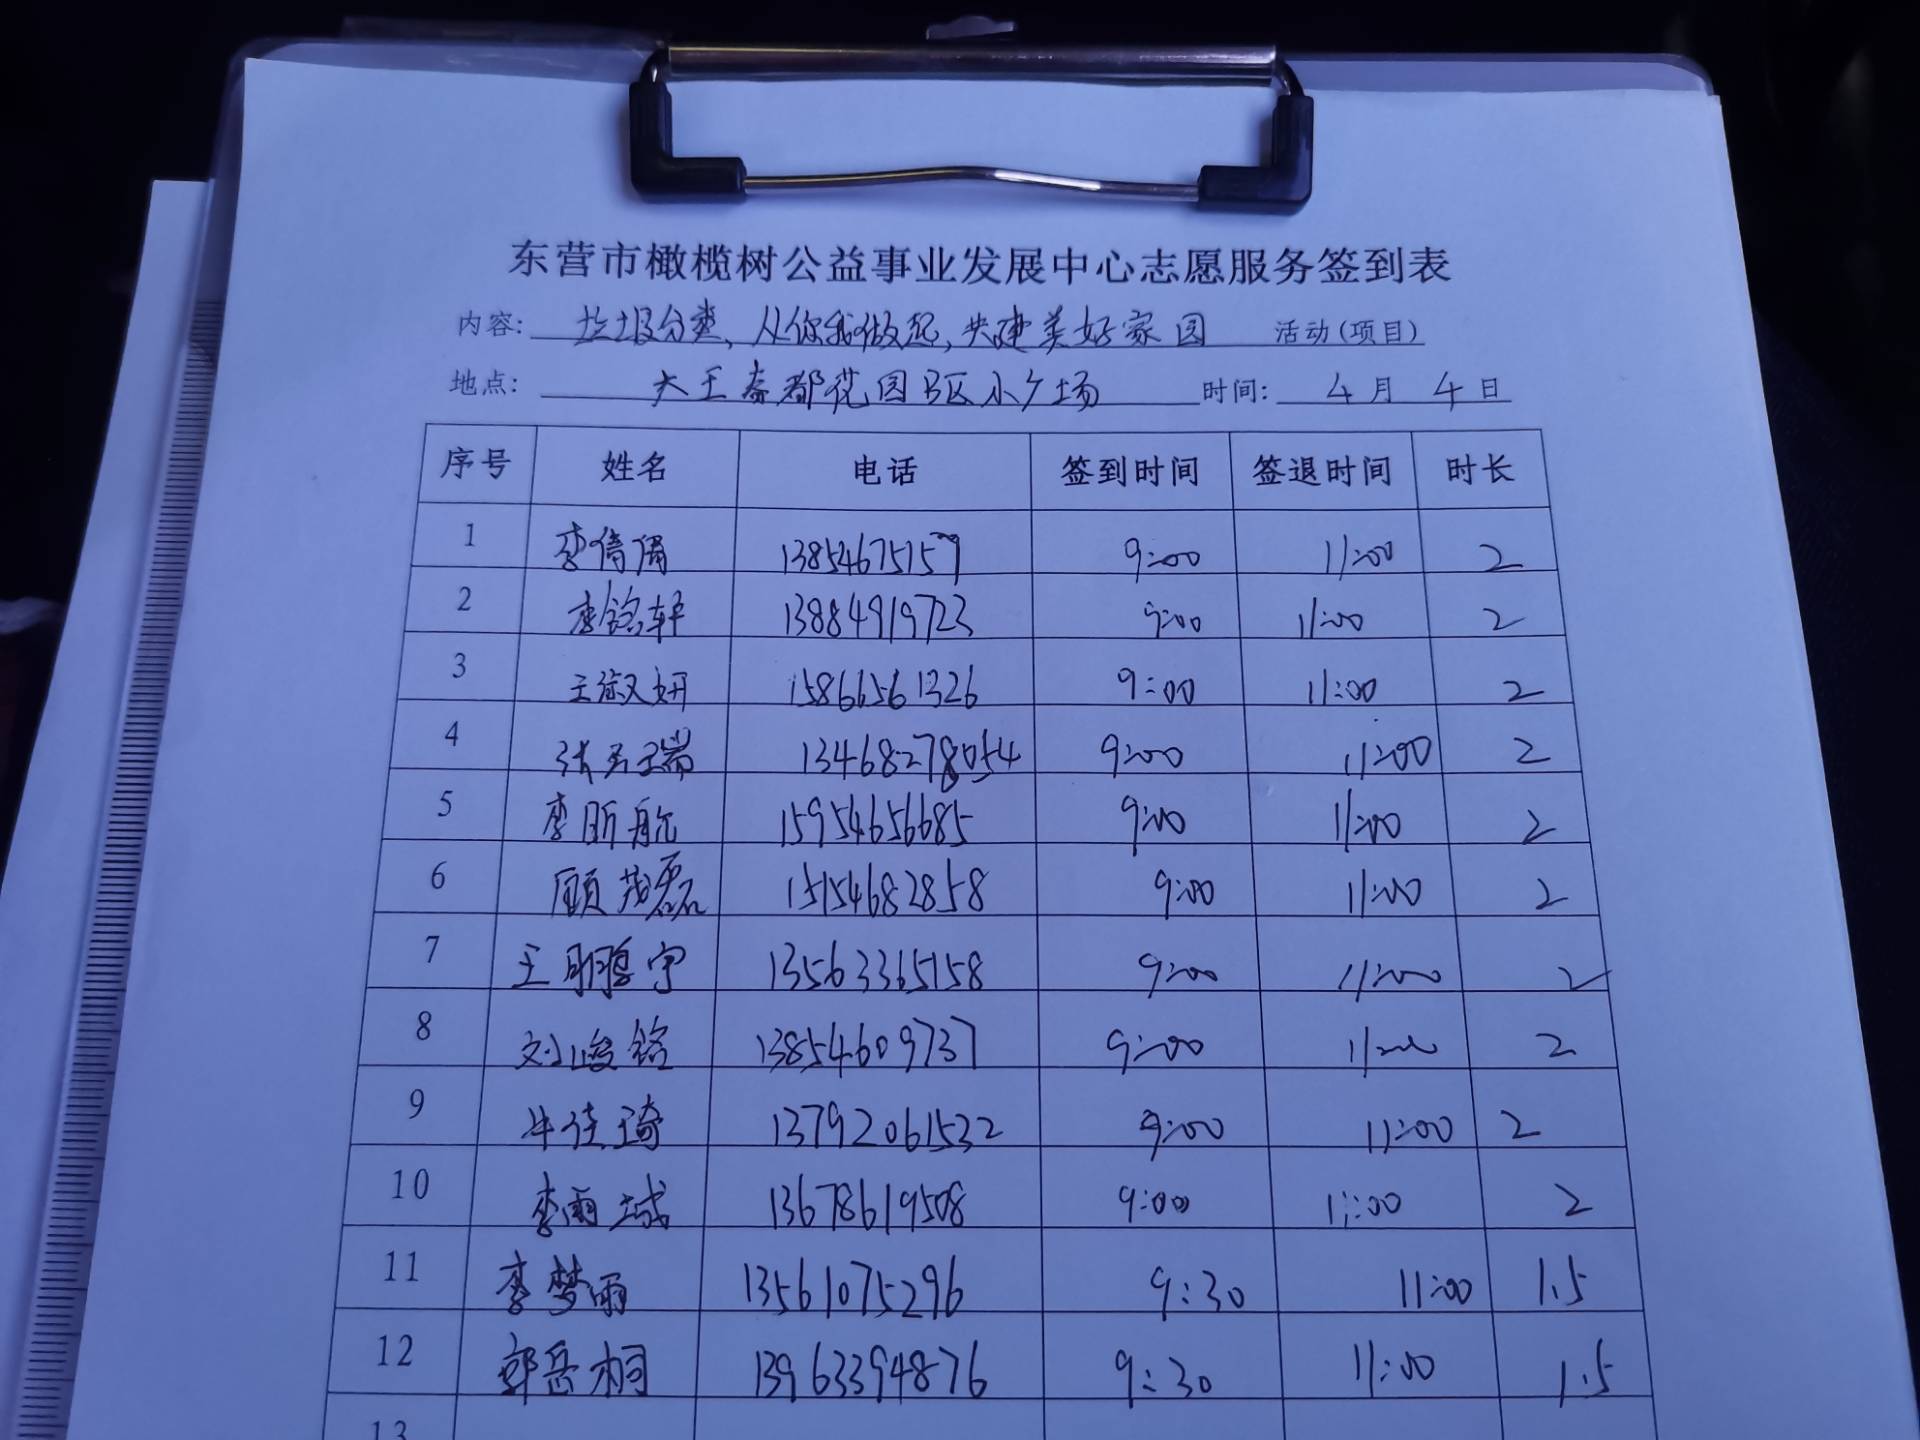 东营市橄榄树公益事业发展中心志愿服务签到表
内容: 垃圾分类, 从你我做起, 共建美好家园 活动(项目)
地点: 大王秦都花园B区小广场 时间: 4月 4日
序号 姓名 电话 签到时间 签退时间 时长
1 李倩倩 13854675157 9:00 11:00 2
2 李铭轩 13884919723 9:00 11:00 2
3 王淑妍 15866561326 9:00 11:00 2
4 张玉瑞 13468278054 9:00 11:00 2
5 李昕航 15954656685 9:00 11:00 2
6 顾茂磊 15154682858 9:00 11:00 2
7 王鹏宇 13563365158 9:00 11:00 2
8 刘峻铭 13854609737 9:00 11:00 2
9 牛佳琦 13792061532 9:00 11:00 2
10 李雨域 13678619508 9:00 11:00 2
11 李梦雨 13561075296 9:30 11:00 1.5
12 郭岳桐 13963394876 9:30 11:00 1.5
13